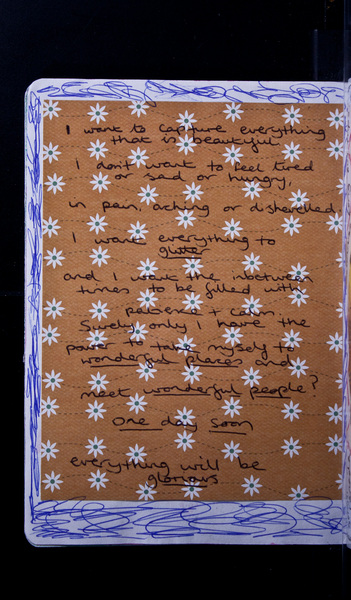 I want to capture everything
that is beautiful
I don't want to feel tired
or sad or hungry,
in pain, aching or dishevelled
I want everything to
glitter
and I want the inbetween
times to be filled with
patience + calm
Surely only I have the
power to take myself to
wonderful places and
meet wonderful people?
One day soon
everything will be
glorious